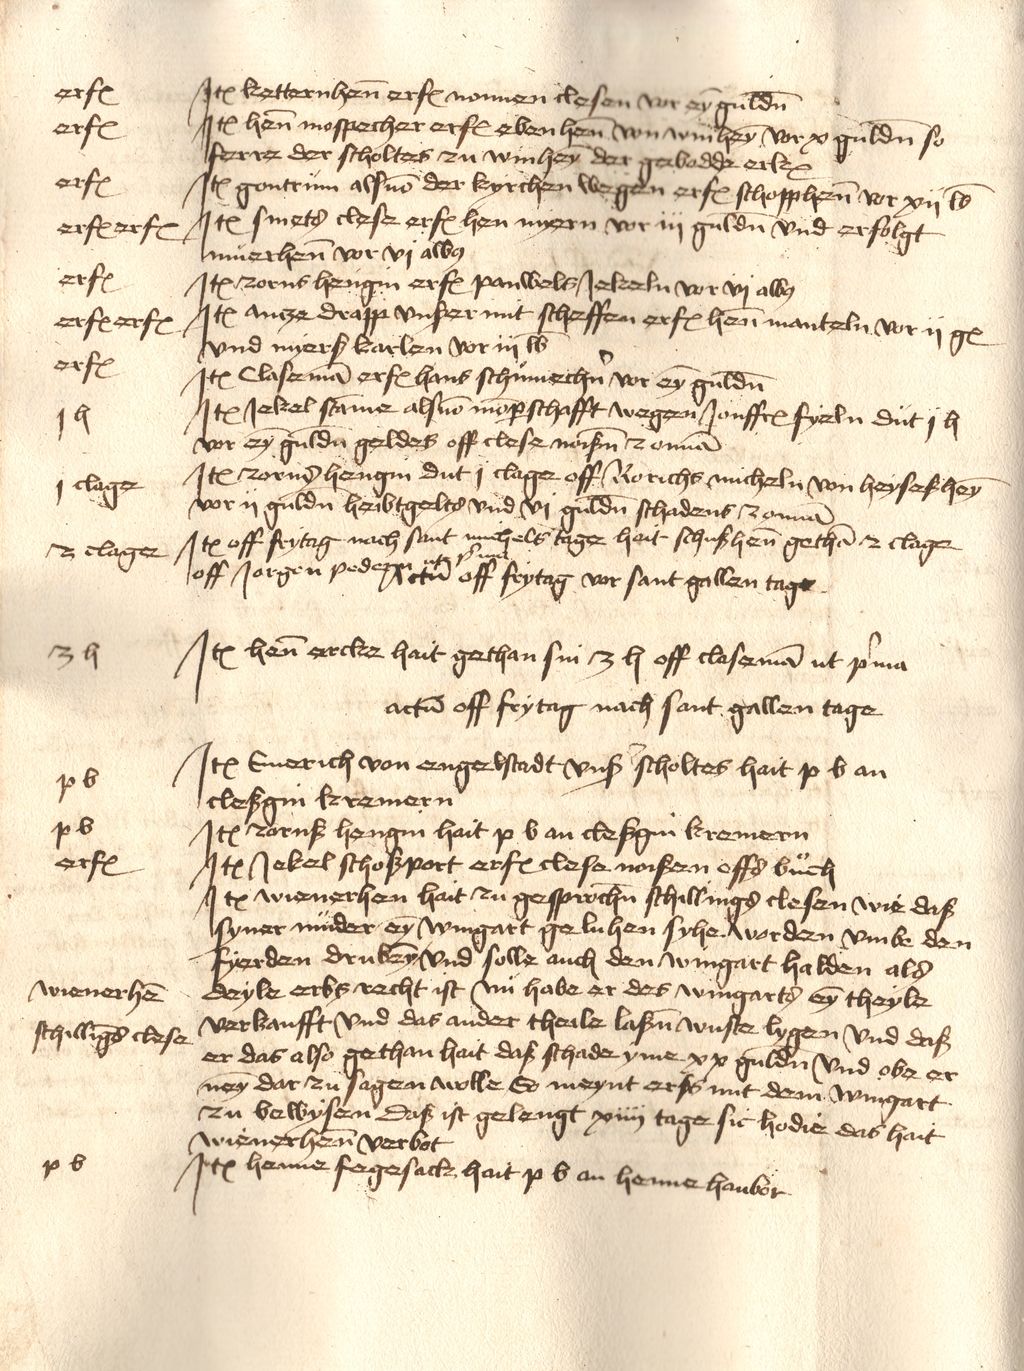 erfꝫ Itꝫ ketternheñ erfꝫ nonnen clesen vor eyͫ guldñ
erfꝫ Itꝫ heñ mospecher erfꝫ eben heñ von winheyͫ vor x guldñ so
ferre der scholtes zu winheyͫ der gebodde erkꝫ
erfꝫ Itꝫ gontrum als vō der kyrchen wegen erfꝫ schopp heñ vor xij lb
erfꝫ erfꝫ Itꝫ smets clese erfꝫ hen myern vor iij guldñ vnd erfolgt
heñ vor vj albꝯ
erfꝫ Itꝫ zorns hengin erfꝫ pauwels Jekeln vor vj albꝯ
erfꝫ erfꝫ Itꝫ antze drapp vnser mit scheffen erfꝫ heñ manteln vor ij gꝫ
vnd myerß karlen vor iij lb
erfꝫ Itꝫ Clasemā erfꝫ hans schumechn̄ vor eyͫ guldñ
j h Itꝫ Jekel stāme als vō mōperschafft wegen Jonffrꝫ fyeln dut j h
vor eyͫ guldñ geldes off clese noißñ z omīa
j clage Itꝫ zorns hengin dut j clage off Rorichs micheln von heysesheyͫ
vor ij guldñ heubtgelts vnd vj guldñ schadens z omīa
2 clage Itꝫ off frytag nach sant michels tage hait schußheñ gethā 2 clage
off Jorgen pedern ut pͥma
Actū off frytag vor sant gallen tage
3 h Itꝫ heñ ercke hait gethan sin 3 h off clasemā ut pͥma
actū off frytag nach sant gallen tage
p b Itꝫ Emerich von engelstadt vnß scholtes hait p b an
cleßgin kremern
p b Itꝫ zornß hengin hait p b an cleßgin kremern
erfꝫ Itꝫ Jekel schoßport erfꝫ clese noißen offs buch
Itꝫ wienerhen hait zu gesprochñ schillings clesen wie daß
syner muder eyͫ wingart geluhen syhe worden vmbe den
fyerden druben vnd solle auch den wingart halden als
wienerhē deyle erbs recht ist nu habe er des wingarts eyͫ theyle
schillīgs clese verkaufft vnd das ander theile laßñ wuste lygen vnd daß
er das also gethan hait daß schade yme xx guldñ vnd obe er
neyͫ dar zu sagen wolle So meynt erß mit dem wingart
zu bewysen daß ist gelengt xiiij tage sic hodie das hait
wienerheñ verbot
p b Itꝫ henne fegesack hait p b an henne haubor